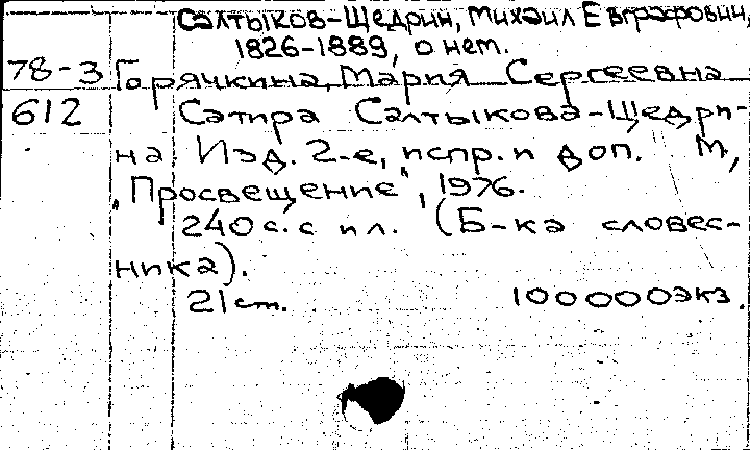 Салтыков-Щедрин, Михаил Евграфович,
1826-1889, о нем.
78-3 Горячкина, Мария Сергеевна
612 Сатира Салтыкова-Щедри-
на. Изд. 2-е, испр. и доп. М,
"Просвещение", 1976.
240 с. с ил. (Б-ка словес-
ника).
21 см. 100000 экз.